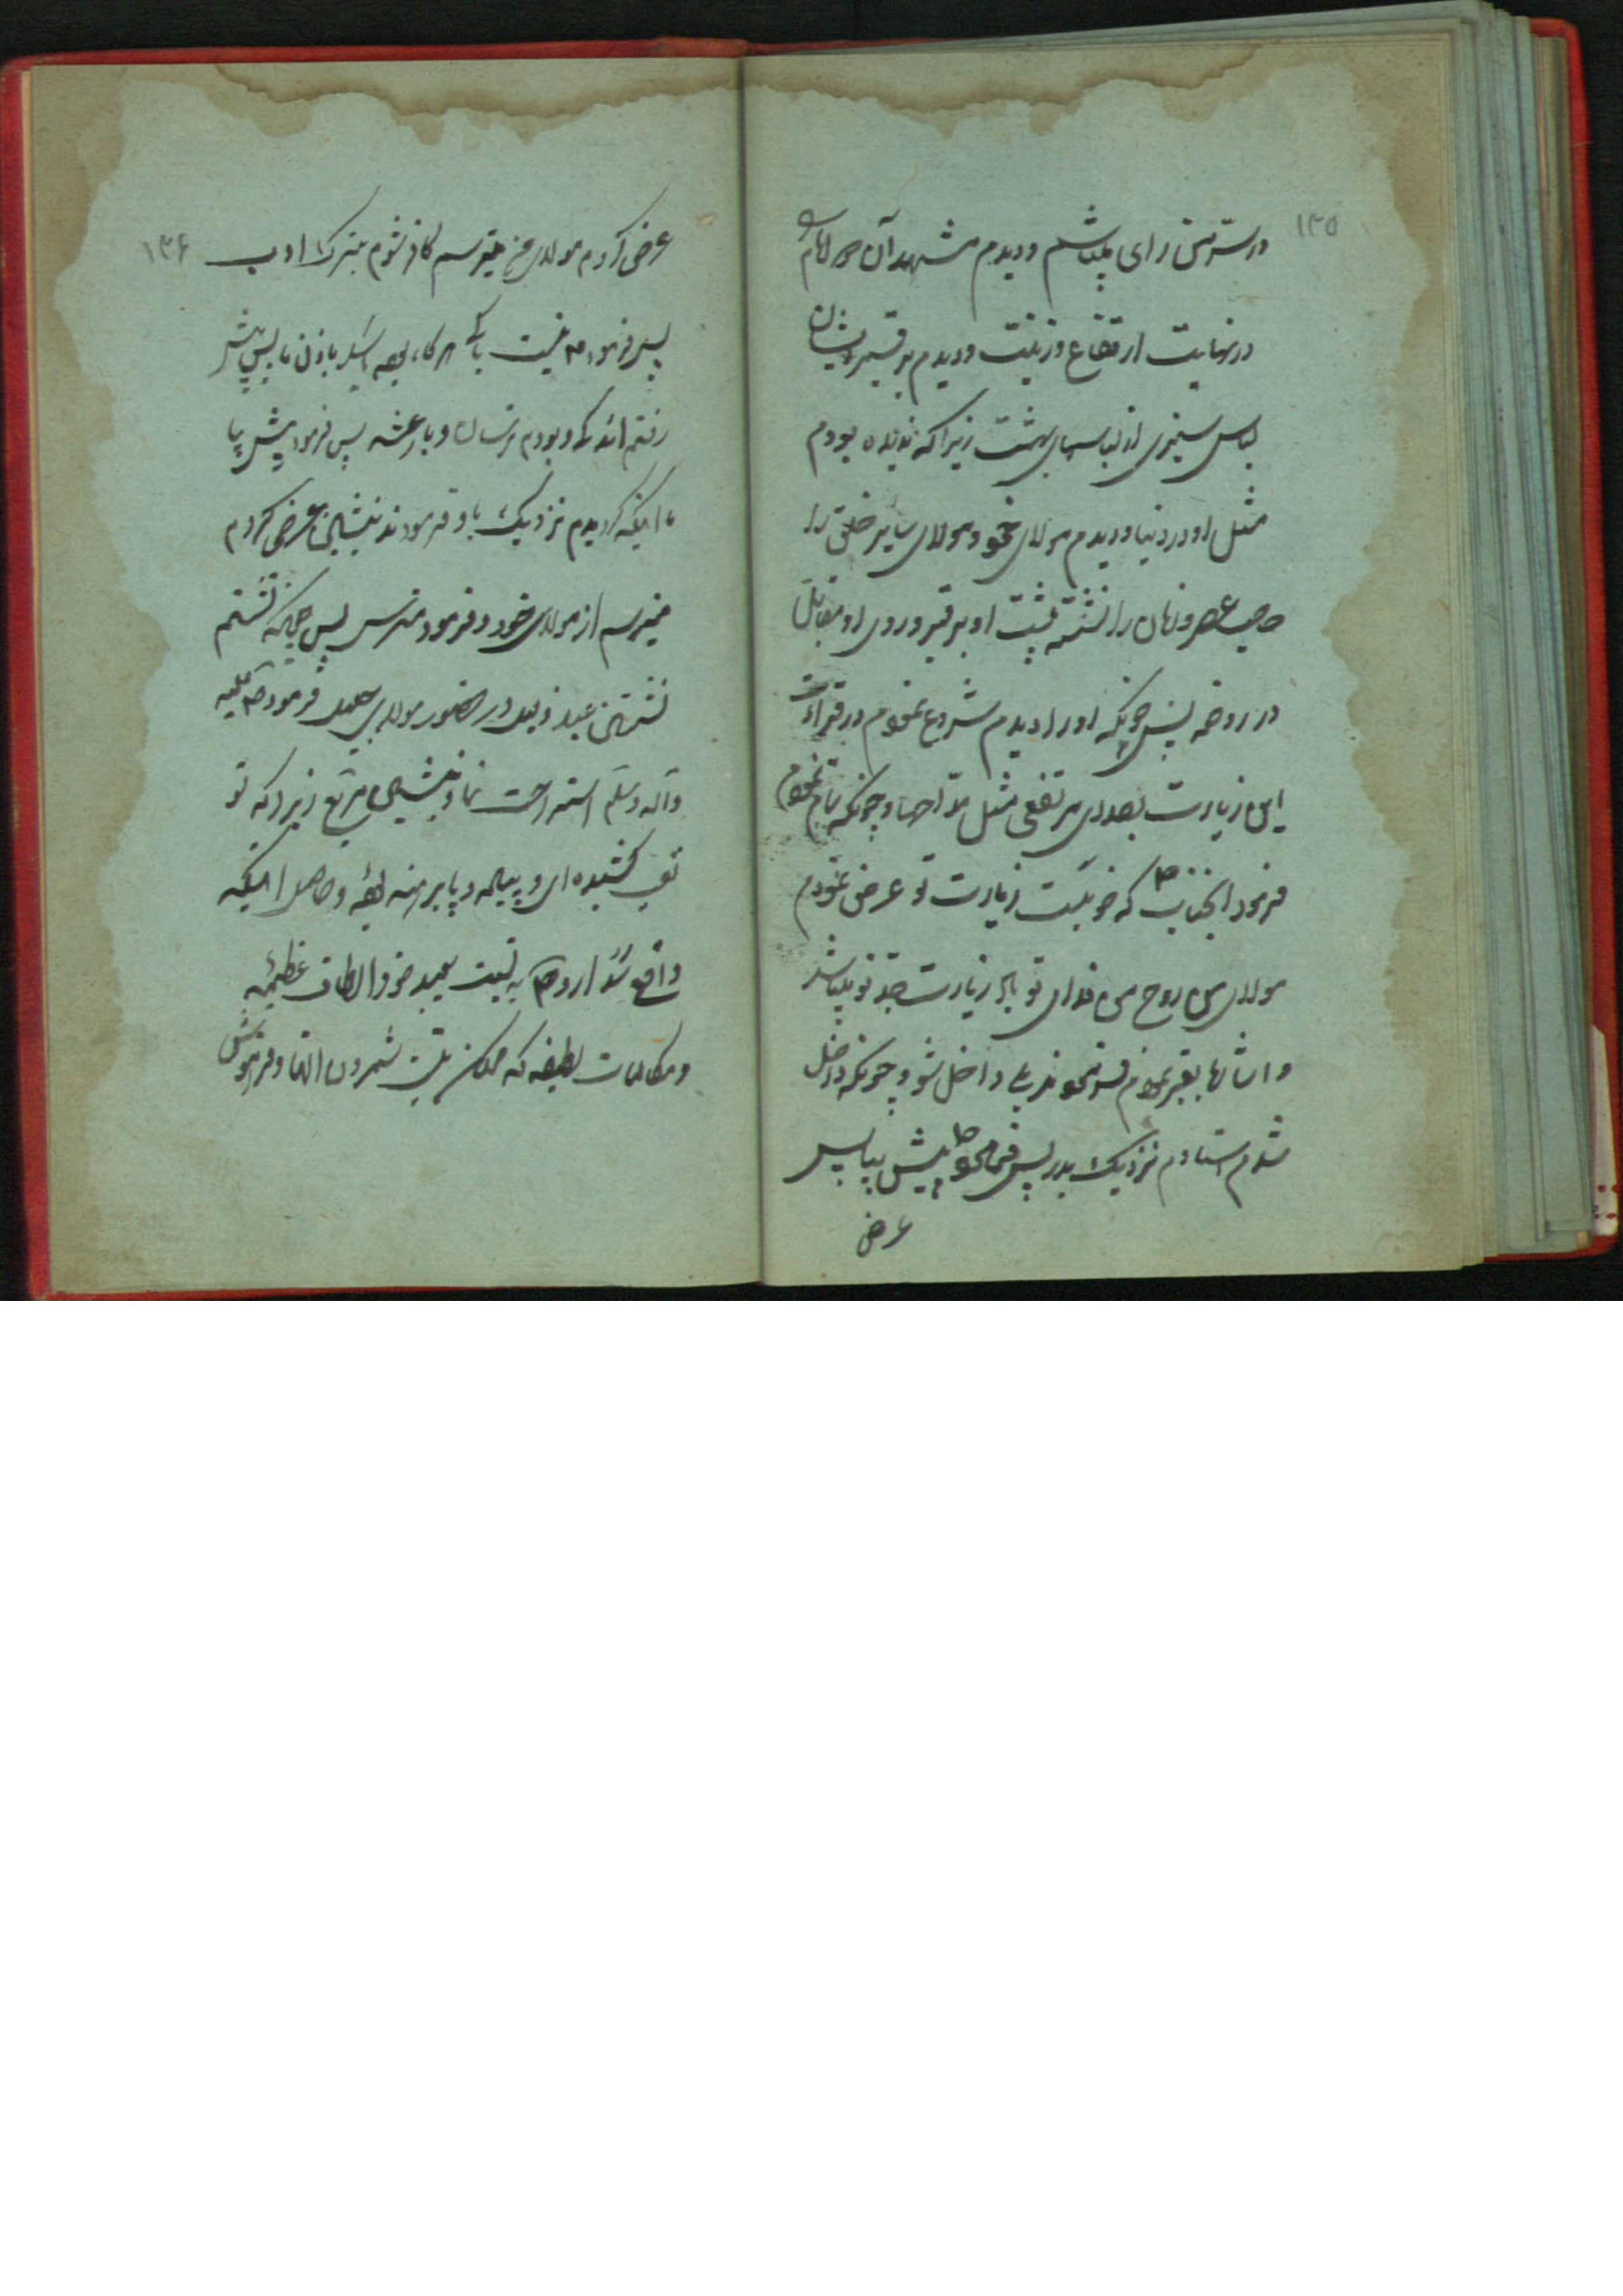 ۱۳۵
در سرّ من رای میباشم و دیدم مشهد آن دو امام را
در نهایت ارتفاع و زینت و دیدم بر قبر ایشان
لباس سبزی از لباسهای بهشت زیرا که ندیده بودم
مثل او در دنیا و دیدم مولای خود و مولای سایر خلق را
صاحب عصر و زمان را نشسته پشت او بر قبر و روی او مقابل
در روضه پس چونکه او را دیدم شروع نمودم در قرائت
این زیارت بصدای مرتفعی مثل مداحها و چونکه تمام نمودم
فرمود آنجناب ص که خوبست زیارت تو عرض نمودم
مولای من روح من فدای تو باد زیارت جدّ تو میباشد
و اشاره بقبر نمودم فرمودند بلی داخل شو و چونکه داخل
شدم استادم نزدیک بدر پس فرمود ص پیش بیا پس
عرض
۱۳۶
عرض کردم مولای من میترسم کافر شوم بترک ادب
پس فرمود ص نیست باکی هرگاه بوده باشد باذن ما پس پیش
رفتم اندکی و بودم ترسان و با رعشه پس فرمود پیش بیا
تا اینکه گردیدم نزدیک باو فرمودند بنشین عرض کردم
میترسم از مولای خود و فرمود مترس پس چونکه نشستم
نشستن عبد ذلیل در حضور مولای جلیل فرمود ص علیه
وآله وسلم استراحت نما و بنشین مربع زیرا که تو
تعب کشیده ای و پیاده و پا برهنه آمده و حاصل اینکه
واقع شد از او ص به نسبت بعبد خود الطاف عظیمه
و مکالمات لطیفه که ممکن نیست شمردن آنها و فراموش